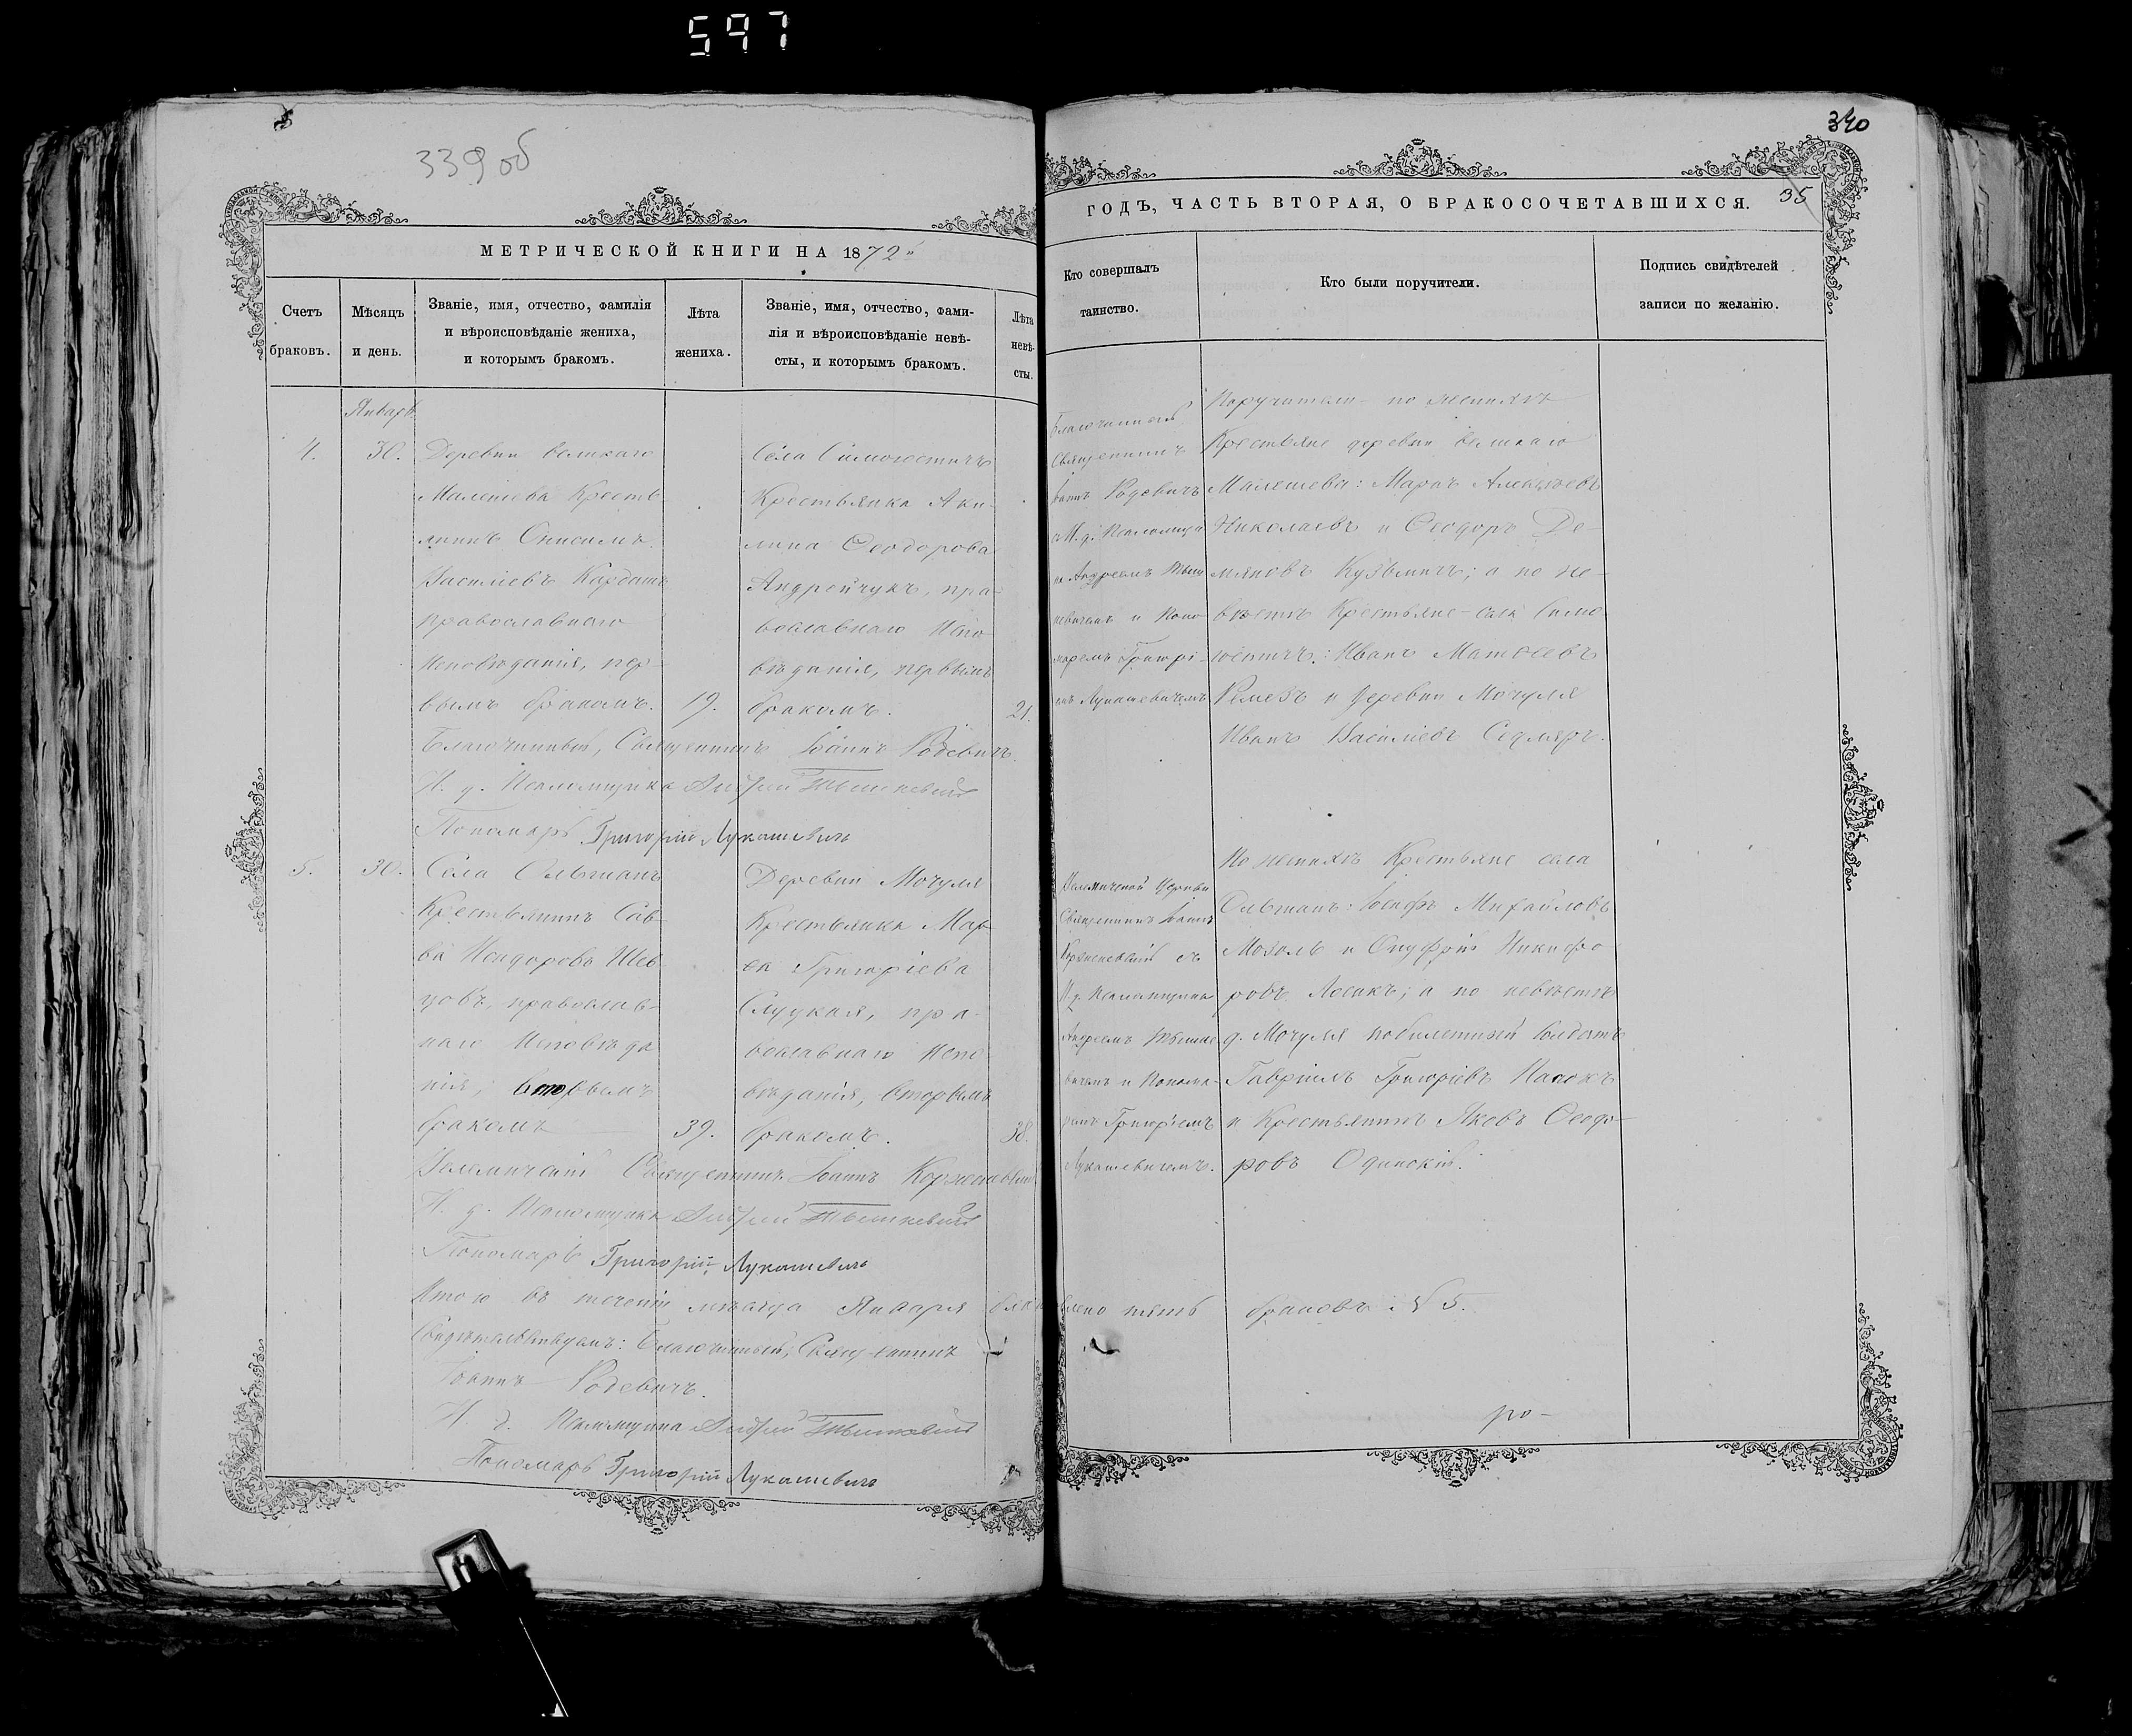 597
339 об
МЕТРИЧЕСКОЙ КНИГИ НА 1872
Счетъ браковъ.
Мѣсяцъ и день.
Званіе, имя, отчество, фамилія
и вѣроисповѣданіе жениха,
и которымъ бракомъ.
Лѣта жениха.
Званіе, имя, отчество, фами-
лія и вѣроисповѣданіе невѣ-
сты, и которымъ бракомъ.
Лѣта невѣ-
сты.
Январь
4.
30.
Деревни великаго
Малешева Кресть
янинъ Онисимъ
Василіевъ
православнаго
исповѣданія, пер-
вымъ бракомъ.
19.
Села
Крестьянка Аки-
лина Ѳеодорова
Андрейчукъ, пра-
вославнаго испо
вѣданія, первымъ
бракомъ.
21.
Благочинный, Священникъ Іоаннъ Родевичъ.
И. д. Псаломщика Андрей Тышкевичъ
Пономарь Григорій Лукашевичъ
5.
30.
Села Ольманъ
Крестьянинъ Сав-
ва Исидоровъ Шев-
цовъ, православ-
наго исповѣда
нія, вторымъ
бракомъ
39.
Деревни Мочуля
Крестьянка Мар
Григоріева
Слуцкая, пра-
вославнаго испо
вѣданія, вторымъ
бракомъ.
38.
Священникъ Іоаннъ
И. д. Псаломщика Андрей Тышкевичъ
Пономарь Григорій Лукашевичъ
Итого въ теченіи мѣсяца Января
Свидѣтельствуемъ: Благочинный, Священникъ
Іоаннъ Родевичъ.
И. д. Псаломщика Андрей Тышкевичъ
Пономарь Григорій Лукашевичъ
340
35
ГОДЪ, ЧАСТЬ ВТОРАЯ, О БРАКОСОЧЕТАВШИХСЯ.
Кто совершалъ
таинство.
Кто были поручители.
Подпись свидѣтелей
записи по желанію.
Благочинный
Священникъ
Іоаннъ Родевичъ
съ И. д. Псаломщи
ка Андреемъ Тыш
кевичемъ и Поно
маремъ Григорі-
емъ Лукашевичемъ
Поручители по женихѣ
Крестьяне деревни великаго
Малешева: Маркъ Алексѣевъ
Николаевъ и Ѳеодоръ Де-
мяновъ Кузьмичъ; а по не-
вѣстѣ Крестьяне села
Иванъ Матѳеевъ
Ремезъ и деревни Мочуля
Иванъ Василіевъ
Церкви
Священникъ Іоаннъ
съ
И. д. Псаломщика
Андреемъ Тышке
вичемъ и Понома-
ремъ Григоріемъ
Лукашевичемъ.
По женихѣ Крестьяне села
Ольманъ: Іосифъ Михайловъ
Мозоль и Онуфрій Никифо
ровъ; а по невѣстѣ
д. Мочуля солдатъ
Гавріилъ Григоріевъ
и Крестьянинъ Яковъ Ѳеодо-
ровъ
пять браковъ № 5.
ро-